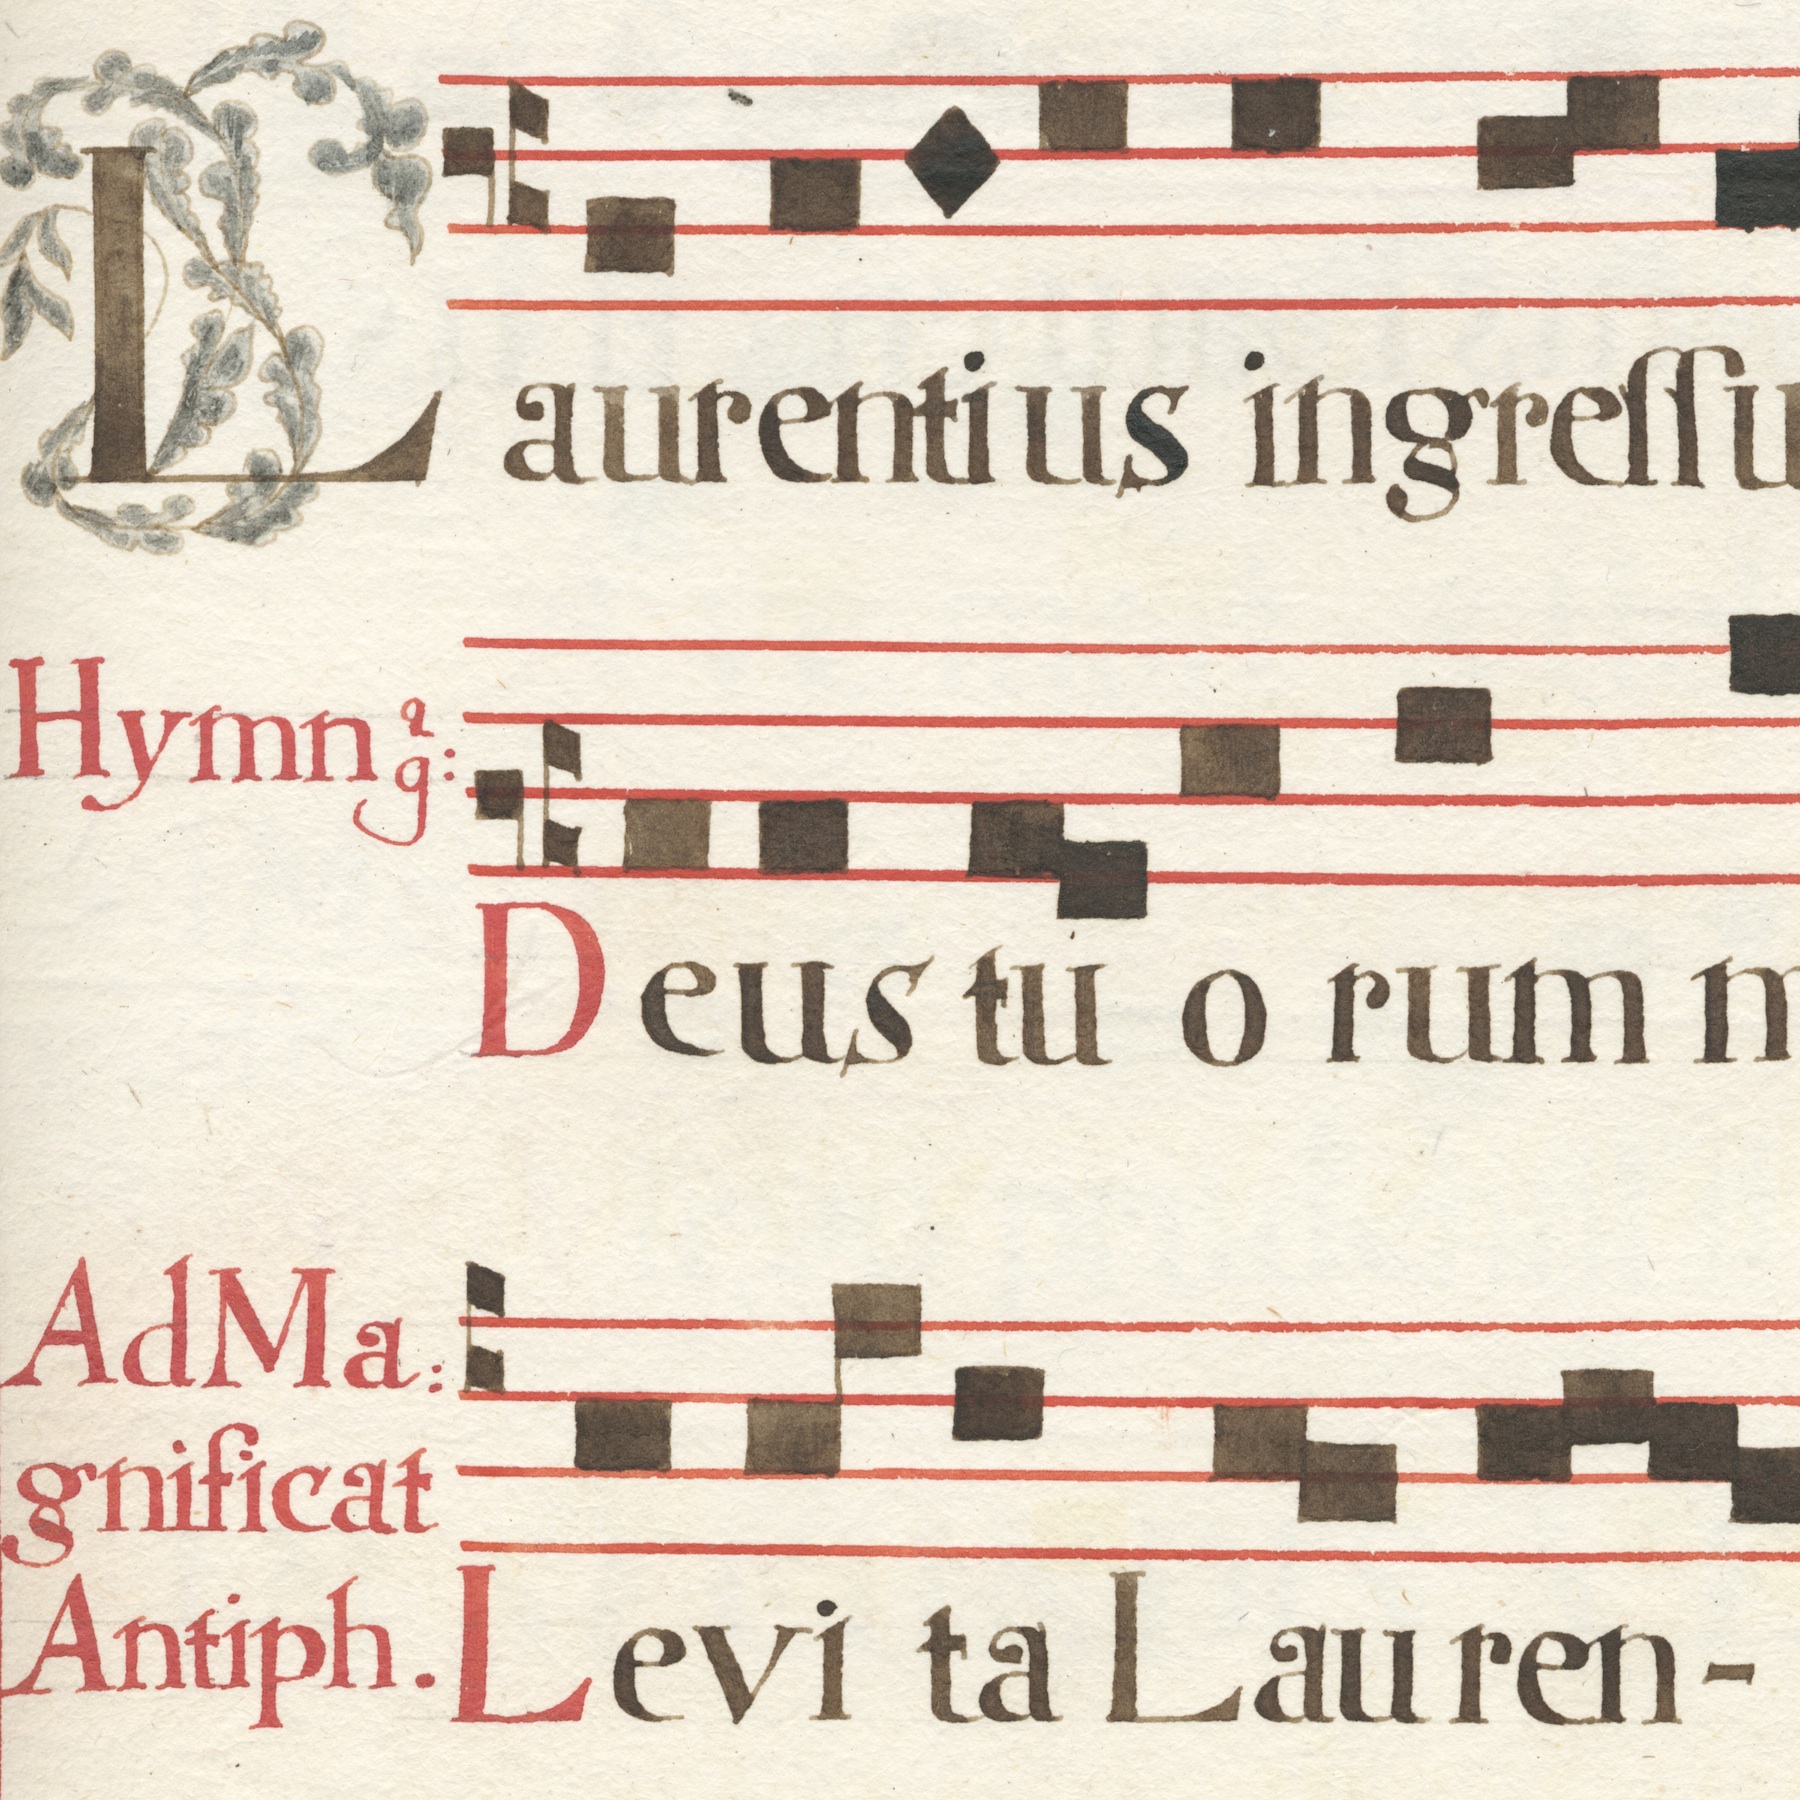 Laurentius ingreſſu
Hymn9:
Deus tu o rum m
Ad Ma:
gnificat
Antiph. Levi ta Lauren-